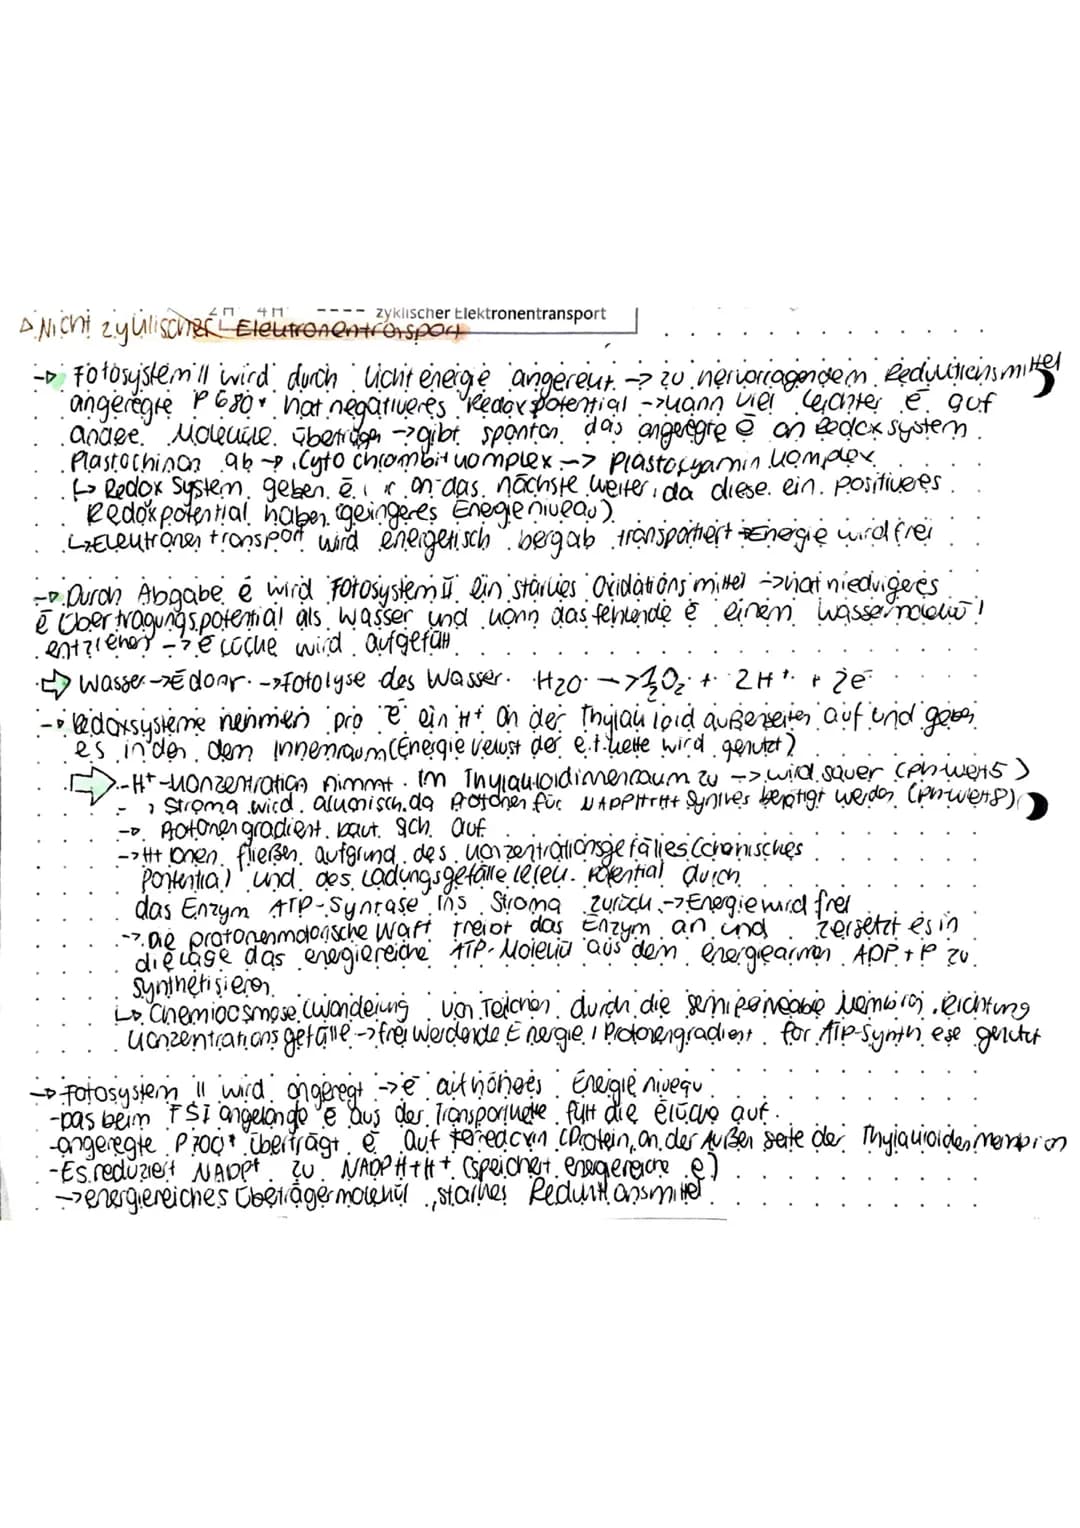 2H 4H ---- zyklischer Elektronentransport
Nicht zyklischer Elektronentransport
-▷ Fotosystem II wird durch Lichtenergie angereut. -> zu hervorragendem Reduktionsmittel
angeregte P680* hat negativeres Redoxpotential -> kann viel leichter e⁻ auf
andere Moleküle übertragen -> gibt spontan das angeregte e⁻ an Redoxsystem
Plastochinon ab -> Cytochrombf komplex -> Plastocyamin komplex
↳ Redox System geben e⁻ an das nächste weiter, da diese ein positiveres
Redoxpotential haben (geingeres Energieniveau)
↳ Elektronen transport wird energetisch bergab transportiert → Energie wird frei
-▷ Durch Abgabe e⁻ wird Fotosystem II ein starkes Oxidationsmittel -> hat niedrigeres
e⁻ Übertragungspotential als Wasser und kann das fehlende e⁻ einem Wassermolekül
entziehen -> e⁻ Lücke wird aufgefüllt
⇨ Wasser -> E⁻donor -> Fotolyse des Wasser. H2O -> ½O₂ + 2H⁺ + 2e⁻
-▷ Redoxsysteme nehmen pro e⁻ ein H⁺ an der Thylakioid außenseiten auf und geben
es in den dem Innenraum (Energie Velust der e.t.kette wird genutzt)
⇨ - H⁺-Konzentration nimmt im Thylakoidinnenraum zu -> wird sauer (ph-wert 5)
- Stroma wird alkalisch, da Protonen für NADPH+H+ Synthes benötigt werden (ph-wert 8)
-▷ Protonengradient baut sich auf
-> H+ Ionen fließen aufgrund des Konzentrationsgefälles (chemisches
Portential) und des Ladungsgefälle (elek. Potential durch
das Enzym ATP-Syntase ins Stroma zurück -> Energie wird frei
-> die protonenmotorische Kraft treibt das Enzym an und zersetzt es in
die Lage das energiereiche ATP-Molekül aus dem energiearmen ADP + P zu
synthetisieren
↳ Chemioosmose (Wanderung von Teilchen durch die semipermeable Membran, Richtung
Konzentrationsgefälle -> frei werdende Energie / Protonengradient für ATP-Synth ese genutzt
-▷ Fotosystem II wird angeregt -> e⁻ auf höheres Energie niveau
-Das beim FSI angelangte e⁻ aus der Transportkette füllt die e⁻lücke auf.
-angeregte P700* überträgt e⁻ auf Ferredoxin (Protein, an der Außen seite der Thylakioidesmembran
-Es reduziert NADP+ zu NADPH+H+ (speichert energereiche e⁻)
-> energiereiches Übeträgermolekül, starkes Reduktionsmittel